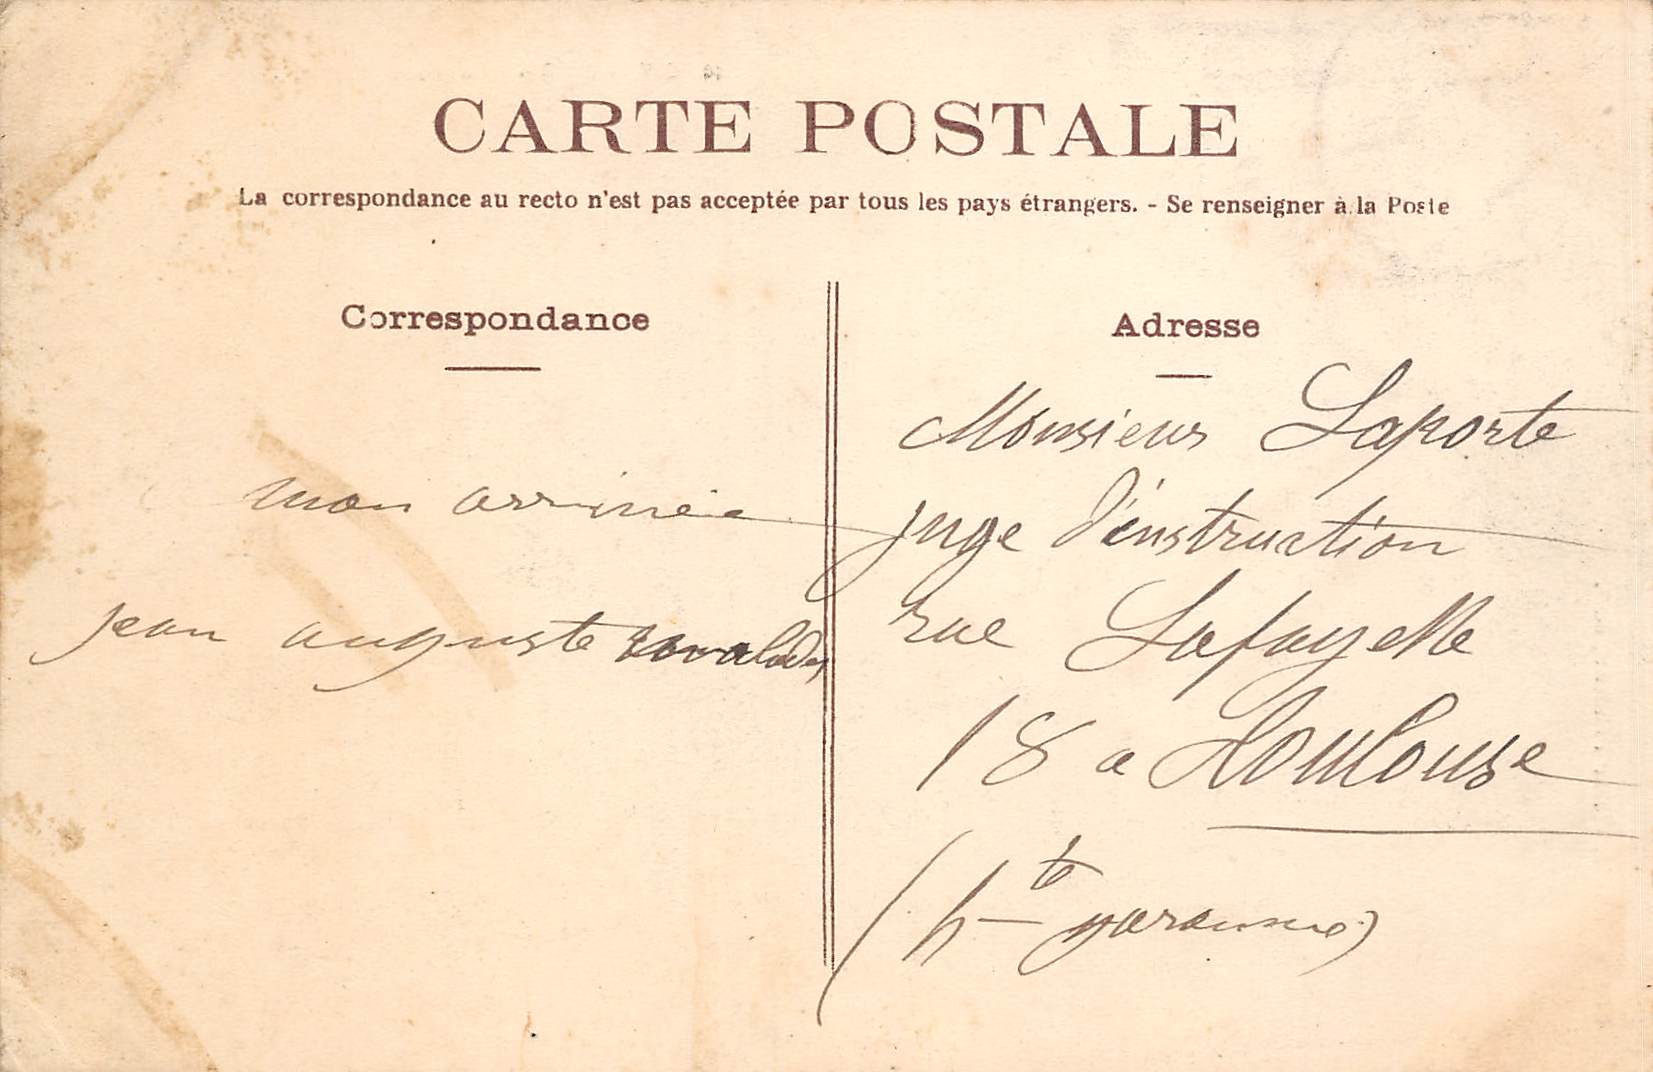 CARTE POSTALE
La correspondance au recto n'est pas acceptée par tous les pays étrangers. - Se renseigner à la Poste
Correspondance
mon arrivée
jean auguste
Adresse
Monsieur Laporte
juge d'instruction
rue Lafayette
18 a Toulouse
(hte garonne)